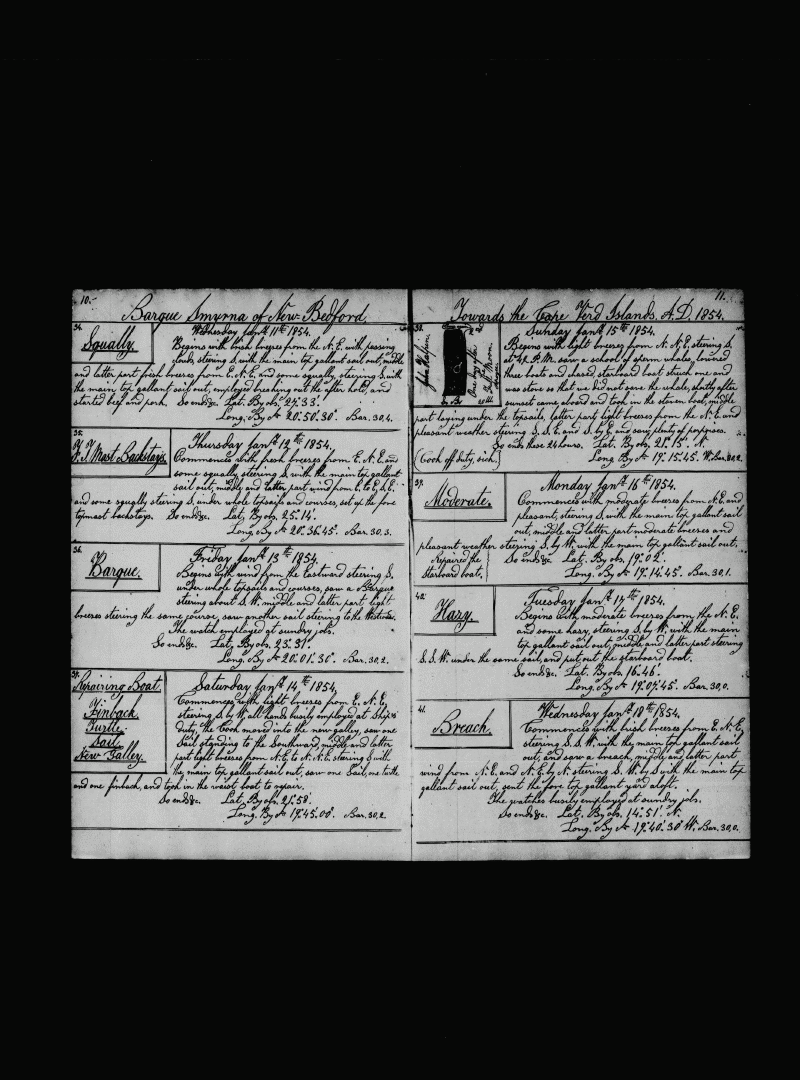 10.
Barque Smyrna of New Bedford
34.
Squally.
Wednesday Jany. 11th 1854.
Begins with brisk breezes from the N.E. with passing
clouds, steering S. with the main top gallant sail out, middle
and latter part fresh breezes from E.N.E. and some squally, steering S. with
the main top gallant sail out, employed breaking out the after hold, and
started beef and pork. So ends &c. Lat. By obs. 27.33.
Long. By Ch. 20.50.30. Bar. 30,4.
35.
F. T. Mast Backstays.
Thursday Jany. 12th 1854.
Commences with fresh breezes from E.N.E. and
some squally steering S. with the main top gallant
sail out, middle and latter part wind from E. to E.S.E.
and some squally steering S. under whole topsails and courses, set up the fore
topmast backstays. So ends &c. Lat. By obs. 25.14.
Long. By Ch. 20.36.45. Bar. 30,3.
36.
Barque.
Friday Jany. 13th 1854.
Begins with wind from the Eastward steering S.
under whole topsails and courses, saw a Barque
steering about S.W. middle and latter part light
breezes steering the same course, saw another sail steering to the Westward.
The watch employed at sundry jobs.
So ends &c. Lat. By obs. 23.31.
Long. By Ch. 20.01.30. Bar. 30,2.
37.
Repairing Boat.
Finback
Turtle.
Sail.
New Galley.
Saturday Jany. 14th 1854.
Commences with light breezes from E.N.E.
steering S. by W. all hands busily employed at Ship's
duty, the Cook moved into the new galley, saw one
Sail standing to the Southward, middle and latter
part light breezes from N.E. to N.N.E. steering S. with
the main top gallant sail out, saw one Sail, one turtle
and one finback, and took in the waist boat to repair.
So ends &c. Lat. By obs. 21.58.
Long. By Ch. 19.45.00. Bar. 30,2.
11.
Towards the Cape Verd Islands. A.D. 1854.
38.
Sunday Jany. 15th 1854.
Begins with light breezes from N.N.E. steering S.
at 4 P.M. saw a school of sperm whales, lowered
three boats and chased starboard boat struck one and
was stove so that we did not save the whale, shortly after
sunset came aboard and took in the stoven boat, middle
part laying under the topsails, latter part light breezes from the N.E. and
pleasant weather steering S.S.E. and S. by E. and saw plenty of porpoises.
So ends these 24 hours. Lat. By obs. 21.15. N.
(Cook off duty, sick) Long. By Ch. 19.15.45. W. Bar. 30,2.
39.
Moderate.
Monday Jany. 16th 1854.
Commences with moderate breezes from N.E. and
pleasant, steering S. with the main top gallant sail
out, middle and latter part moderate breezes and
pleasant weather steering S. by W. with the main top gallant sail out.
Repaired the
starboard boat.
So ends &c. Lat. By obs. 19.02.
Long. By Ch. 19.14.45. Bar. 30,1.
40.
Hazy.
Tuesday Jany. 17th 1854.
Begins with moderate breezes from the N.E.
and some hazy, steering S. by W. with the main
top gallant sail out, middle and latter part steering
S.S.W. under the same sail, and put out the starboard boat.
So ends &c. Lat. By obs. 16.46.
Long. By Ch. 19.07.45. Bar. 30,0.
41.
Breach.
Wednesday Jany. 18th 1854.
Commences with brisk breezes from E.N.E.
steering S.S.W. with the main top gallant sail
out, and saw a breach, middle and latter part
wind from N.E. and N.E. by N. steering S.W. by S. with the main top
gallant sail out, sent the fore top gallant yard aloft.
The watches busily employed at sundry jobs.
So ends &c. Lat. By obs. 14.51. N.
Long. By Ch. 19.40.30 W. Bar. 30,0.